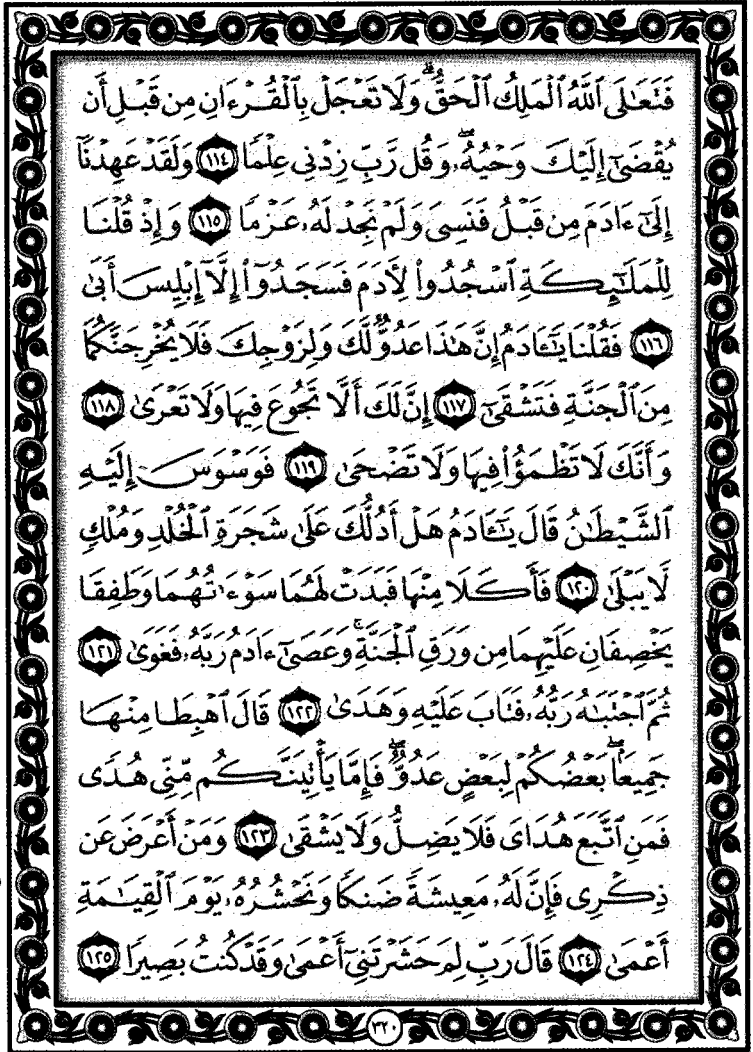 فَتَعَٰلَى ٱللَّهُ ٱلْمَلِكُ ٱلْحَقُّ ۗ وَلَا تَعْجَلْ بِٱلْقُرْءَانِ مِن قَبْلِ أَن
يُقْضَىٰٓ إِلَيْكَ وَحْيُهُۥ ۖ وَقُل رَّبِّ زِدْنِى عِلْمًا ١١٤ وَلَقَدْ عَهِدْنَآ
إِلَىٰٓ ءَادَمَ مِن قَبْلُ فَنَسِىَ وَلَمْ نَجِدْ لَهُۥ عَزْمًا ١١٥ وَإِذْ قُلْنَا
لِلْمَلَٰٓئِكَةِ ٱسْجُدُوا۟ لِأَدَمَ فَسَجَدُوٓا۟ إِلَّآ إِبْلِيسَ أَبَىٰ
١١٦ فَقُلْنَا يَٰٓـَٔادَمُ إِنَّ هَٰذَا عَدُوٌّ لَّكَ وَلِزَوْجِكَ فَلَا يُخْرِجَنَّكُمَا
مِنَ ٱلْجَنَّةِ فَتَشْقَىٰٓ ١١٧ إِنَّ لَكَ أَلَّا تَجُوعَ فِيهَا وَلَا تَعْرَىٰ ١١٨
وَأَنَّكَ لَا تَظْمَؤُا۟ فِيهَا وَلَا تَضْحَىٰ ١١٩ فَوَسْوَسَ إِلَيْهِ
ٱلشَّيْطَٰنُ قَالَ يَٰٓـَٔادَمُ هَلْ أَدُلُّكَ عَلَىٰ شَجَرَةِ ٱلْخُلْدِ وَمُلْكٍ
لَّا يَبْلَىٰ ١٢٠ فَأَكَلَا مِنْهَا فَبَدَتْ لَهُمَا سَوْءَٰتُهُمَا وَطَفِقَا
يَخْصِفَانِ عَلَيْهِمَا مِن وَرَقِ ٱلْجَنَّةِ ۚ وَعَصَىٰٓ ءَادَمُ رَبَّهُۥ فَغَوَىٰ ١٢١
ثُمَّ ٱجْتَبَٰهُ رَبُّهُۥ فَتَابَ عَلَيْهِ وَهَدَىٰ ١٢٢ قَالَ ٱهْبِطَا مِنْهَا
جَمِيعًۢا ۖ بَعْضُكُمْ لِبَعْضٍ عَدُوٌّ ۖ فَإِمَّا يَأْتِيَنَّكُم مِّنِّى هُدًى
فَمَنِ ٱتَّبَعَ هُدَاىَ فَلَا يَضِلُّ وَلَا يَشْقَىٰ ١٢٣ وَمَنْ أَعْرَضَ عَن
ذِكْرِى فَإِنَّ لَهُۥ مَعِيشَةً ضَنكًا وَنَحْشُرُهُۥ يَوْمَ ٱلْقِيَٰمَةِ
أَعْمَىٰ ١٢٤ قَالَ رَبِّ لِمَ حَشَرْتَنِىٓ أَعْمَىٰ وَقَدْ كُنتُ بَصِيرًا ١٢٥
٣٢٠